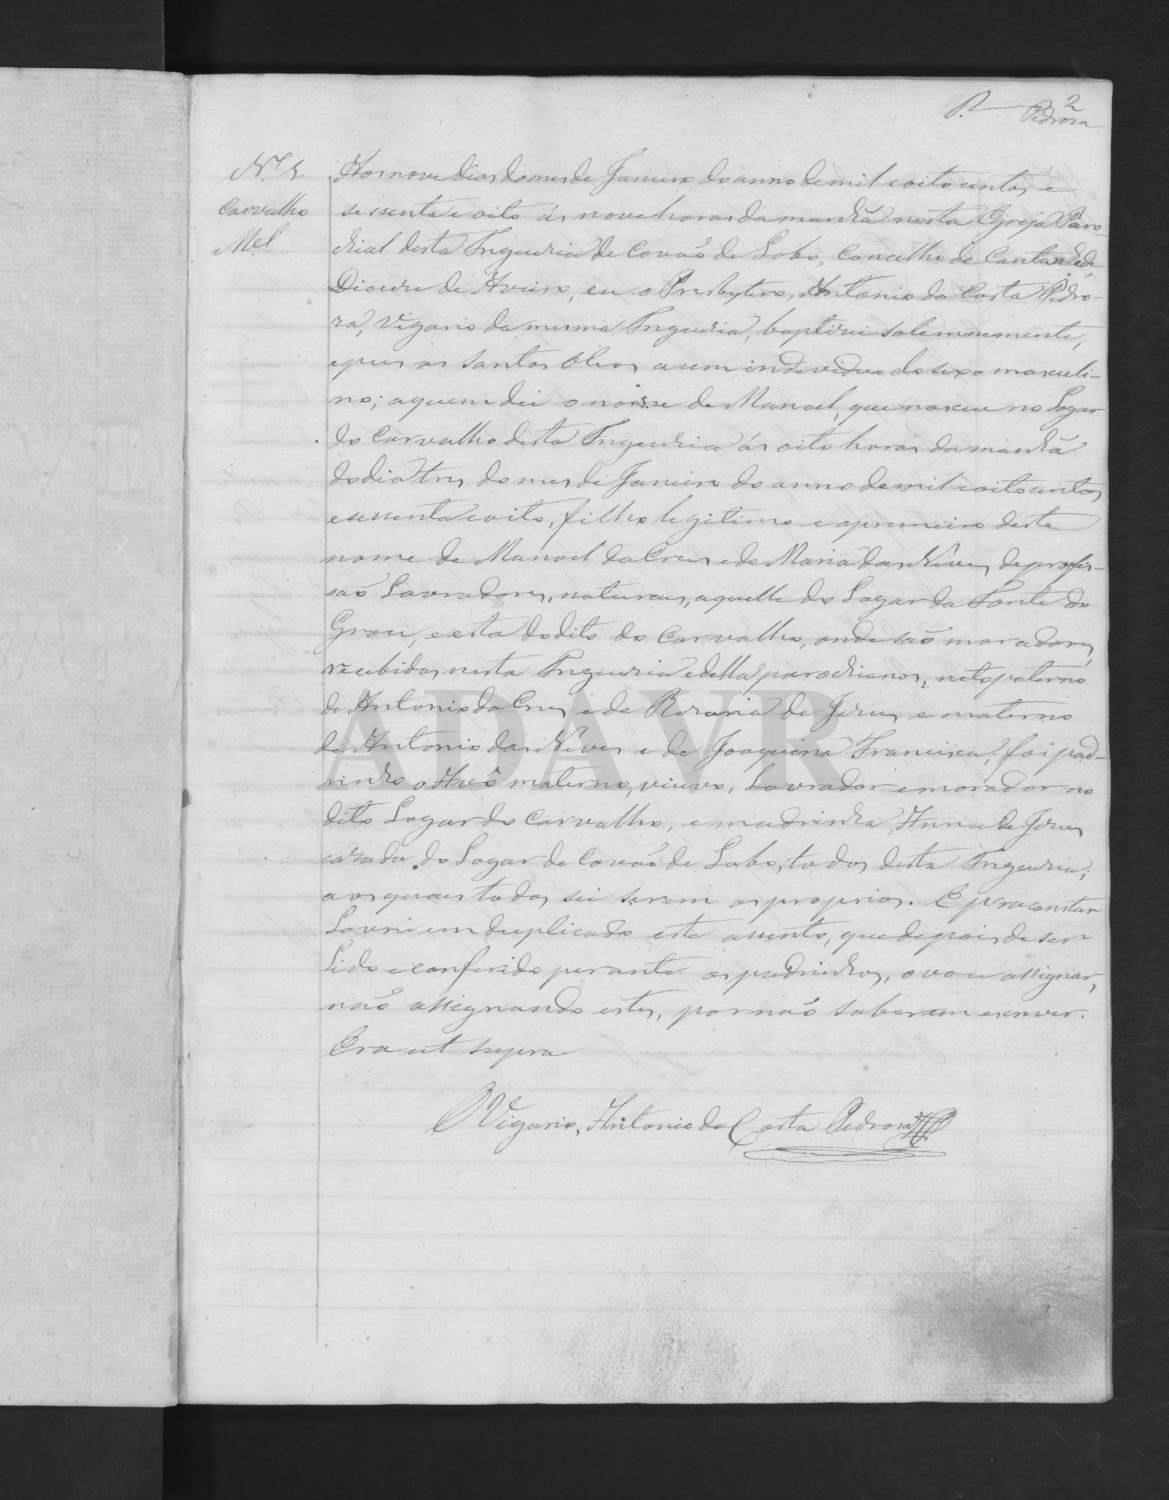 2
P. Pedrosa
N.º 1
Carvalho
Mel
Aos nove dias do mes de Janeiro do anno de mil e oito centos e
sessenta e oito ás nove horas da manhã nesta Egreja Paro-
chial desta Freguezia de Covão de Lobo, Concelho de Cantanhede
Diocese de Aveiro, eu o Presbytero, Antonio da Costa Pedro-
za, Vigario da mesma Freguezia, baptizei solemnemente,
e puz os Santos Oleos a um individuo do sexo masculi-
no; a quem dei o nome de Manoel, que nasceu no Logar
do Carvalho desta Freguezia ás oito horas da manhã
do dia tres do mes de Janeiro do anno de mil e oito centos
e sessenta e oito, filho legitimo e o primeiro deste
nome de Manoel da Crus e de Maria das Neves, de profis-
são Lavradores, naturaes, aquelle do Logar da Fonte do
Grou, e esta do dito do Carvalho, onde são moradores,
recebidos nesta Freguezia e della parochianos, neto paterno
de Antonio da Crus e de Rozaria de Jesus e materno
de Antonio das Neves e de Joaquina Francisca; foi pad-
rinho o Avô materno, viuvo, Lavrador e morador no
dito Logar do Carvalho, e madrinha, Anna de Jesus
cazada, do Logar de Covão de Lobo, todos desta Freguezia;
aos quaes todos sei serem os proprios. E para constar
Lavrei em duplicado este assento, que depois de ser
Lido e conferido perante os padrinhos, o vou assignar,
não assignando estes, por não saberem escrever.
Era ut supra
O Vigario, Antonio da Costa Pedrosa
ADAVR